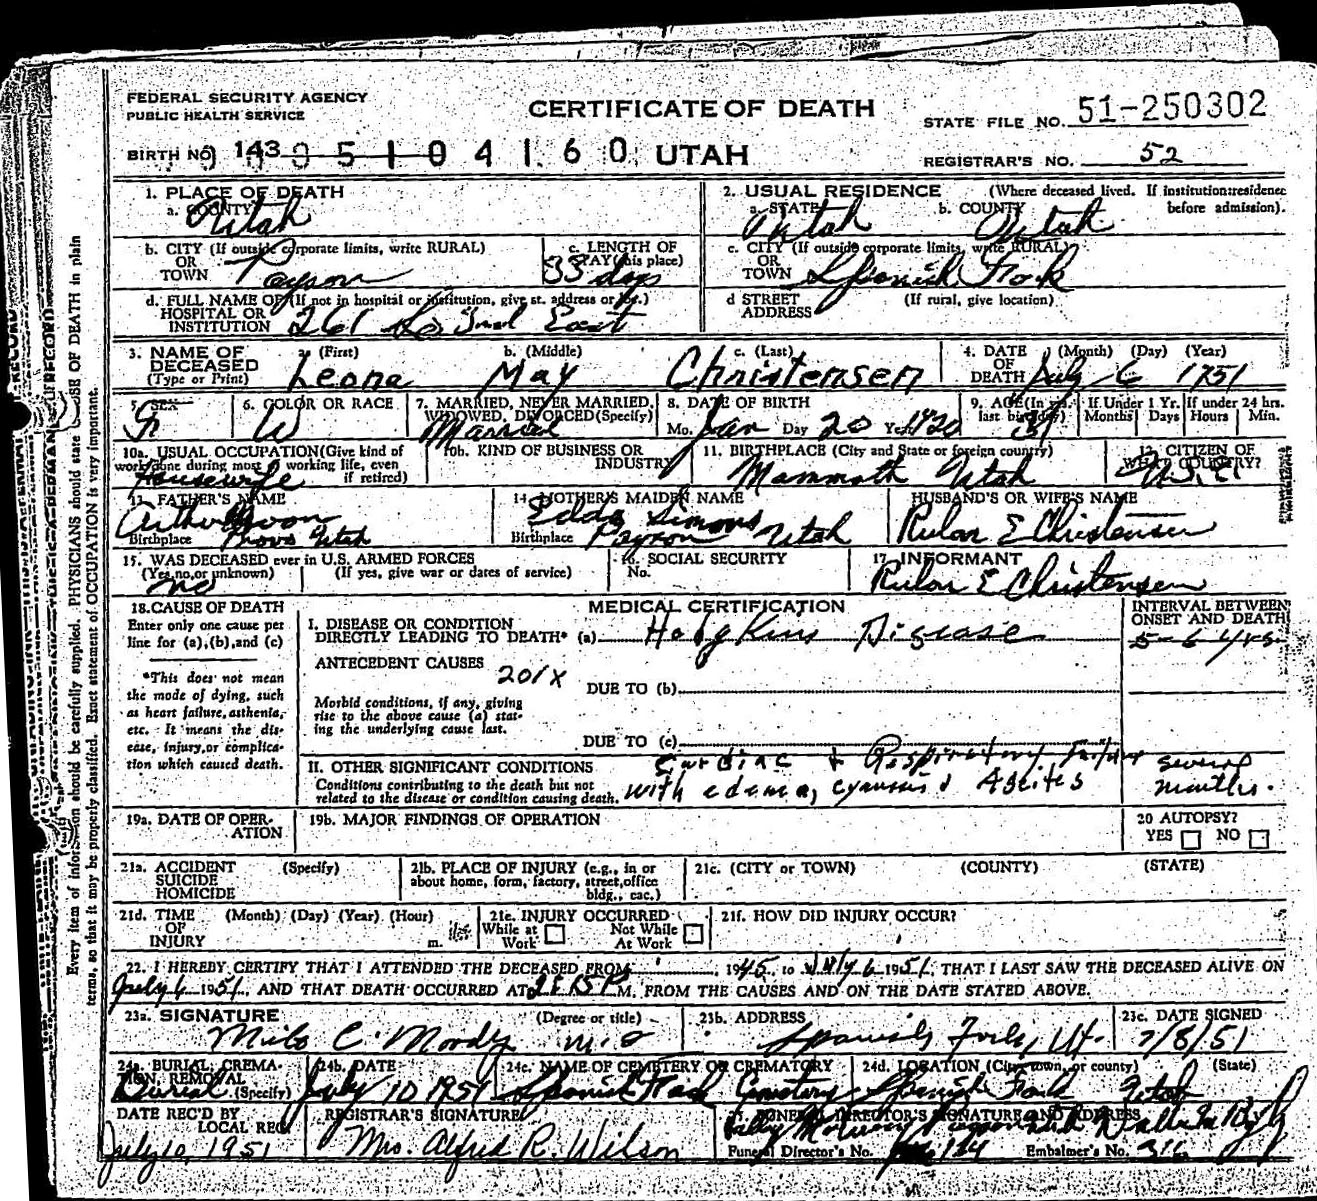 FEDERAL SECURITY AGENCY
PUBLIC HEALTH SERVICE
CERTIFICATE OF DEATH
STATE FILE NO. 51-250302
BIRTH NO. 143 051 04160 UTAH
REGISTRAR'S NO. 52
1. PLACE OF DEATH
a. COUNTY Utah
2. USUAL RESIDENCE (Where deceased lived. If institution: residence before admission).
a. STATE Utah b. COUNTY Utah
b. CITY (If outside corporate limits, write RURAL) OR TOWN Payson
c. LENGTH OF STAY (in this place) 33 days
c. CITY (If outside corporate limits, write RURAL) OR TOWN Spanish Fork
d. FULL NAME OF (If not in hospital or institution, give st. address or loc.) HOSPITAL OR INSTITUTION 261 So 2nd East
d STREET ADDRESS (If rural, give location)
3. NAME OF DECEASED (Type or Print)
a. (First) Leona b. (Middle) May c. (Last) Christensen
4. DATE OF DEATH (Month) (Day) (Year) July 6 1951
5. SEX F
6. COLOR OR RACE W
7. MARRIED, NEVER MARRIED, WIDOWED, DIVORCED (Specify) Married
8. DATE OF BIRTH Mo. Jan Day 20 Year 1920
9. AGE (In yrs. last birthday) 31 If Under 1 Yr. Months Days If under 24 hrs. Hours Min.
10a. USUAL OCCUPATION (Give kind of work done during most of working life, even if retired) Housewife
10b. KIND OF BUSINESS OR INDUSTRY
11. BIRTHPLACE (City and State or foreign country) Mammoth Utah
12. CITIZEN OF WHAT COUNTRY? U.S.A.
13. FATHER'S NAME Arthur Boon
Birthplace Provo Utah
14. MOTHER'S MAIDEN NAME Edda Simons
Birthplace Payson Utah
HUSBAND'S OR WIFE'S NAME Rulon E Christensen
15. WAS DECEASED ever in U.S. ARMED FORCES
(Yes, no, or unknown) (If yes, give war or dates of service)
no
16. SOCIAL SECURITY No.
17. INFORMANT Rulon E Christensen
18. CAUSE OF DEATH
Enter only one cause per line for (a), (b), and (c)
*This does not mean the mode of dying, such as heart failure, asthenia, etc. It means the disease, injury, or complication which caused death.
MEDICAL CERTIFICATION
INTERVAL BETWEEN ONSET AND DEATH
I. DISEASE OR CONDITION DIRECTLY LEADING TO DEATH* (a) Hodgkins Disease 5-6 yrs.
ANTECEDENT CAUSES 201X
DUE TO (b)
Morbid conditions, if any, giving rise to the above cause (a) stating the underlying cause last.
DUE TO (c)
II. OTHER SIGNIFICANT CONDITIONS
Conditions contributing to the death but not related to the disease or condition causing death.
Cardiac & Respiratory Failure
with edema, cyanosis & Ascites
several months.
19a. DATE OF OPERATION
19b. MAJOR FINDINGS OF OPERATION
20 AUTOPSY?
YES NO
21a. ACCIDENT SUICIDE HOMICIDE (Specify)
21b. PLACE OF INJURY (e.g., in or about home, form, factory, street, office bldg., eac.)
21c. (CITY OR TOWN) (COUNTY) (STATE)
21d. TIME OF INJURY (Month) (Day) (Year) (Hour) m.
21e. INJURY OCCURRED
While at Work Not While At Work
21f. HOW DID INJURY OCCUR?
22. I HEREBY CERTIFY THAT I ATTENDED THE DECEASED FROM 1945, to July 6 1951, THAT I LAST SAW THE DECEASED ALIVE ON
July 6 1951, AND THAT DEATH OCCURRED AT P M. FROM THE CAUSES AND ON THE DATE STATED ABOVE.
23a. SIGNATURE (Degree or title)
Milo C. Moody M.D.
23b. ADDRESS Spanish Fork, Ut.
23c. DATE SIGNED 7/8/51
24a. BURIAL, CREMATION, REMOVAL (Specify) Burial
24b. DATE July 10 1951
24c. NAME OF CEMETERY OR CREMATORY Spanish Fork Cemetery
24d. LOCATION (City, town, or county) (State) Spanish Fork Utah
DATE REC'D BY LOCAL REG. July 10, 1951
REGISTRAR'S SIGNATURE Mrs. Alfred R. Wilson
FUNERAL DIRECTOR'S SIGNATURE AND ADDRESS
Funeral Director's No. 124 Embalmer's No. 316
Every item of information should be carefully supplied. PHYSICIANS should state CAUSE OF DEATH in plain
terms, so that it may be properly classified. Exact statement of OCCUPATION is very important.